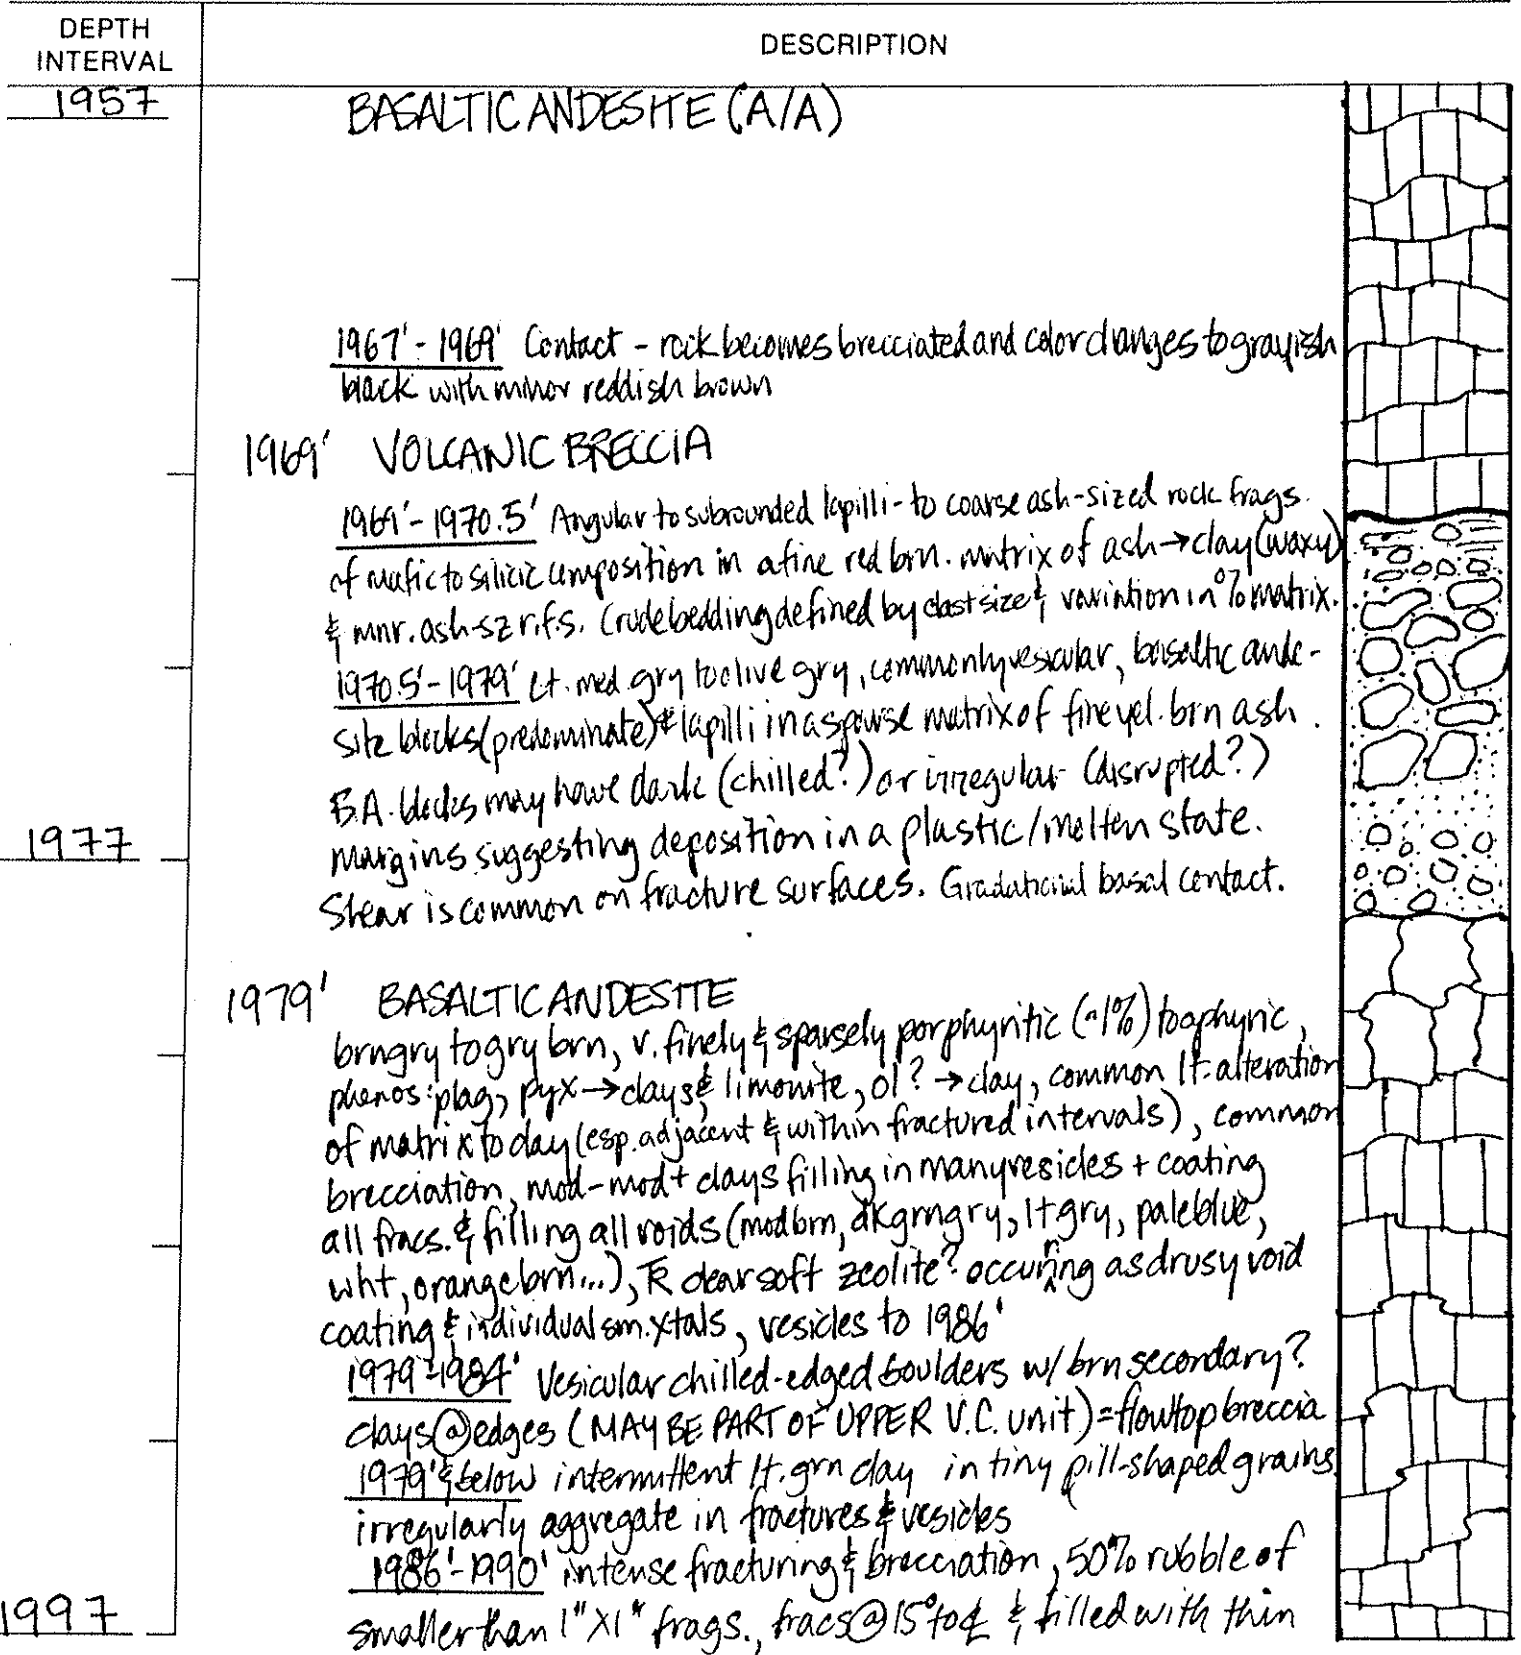 DEPTH
INTERVAL
DESCRIPTION
1957
BASALTIC ANDESITE (A/A)
1967' - 1969' Contact - rock becomes brecciated and color changes to grayish
black with minor reddish brown
1969' VOLCANIC BRECCIA
1969' - 1970.5' Angular to subrounded lapilli - to coarse ash-sized rock frags.
of mafic to silicic composition in a fine red brn. matrix of ash → clay (waxy)
& mnr. ash-sz r.f.s. Crude bedding defined by clast size & variation in % matrix.
1970.5' - 1979' Lt. med. gry to olive gry, commonly vesicular, basaltic ande-
site blocks (predominate) & lapilli in a sparse matrix of fine yel. brn ash.
B.A. blocks may have dark (chilled?) or irregular (disrupted?)
1977
margins suggesting deposition in a plastic/molten state.
Shear is common on fracture surfaces. Gradational basal contact.
1979' BASALTIC ANDESITE
brngry to gry brn, v. finely & sparsely porphyritic (~1%) to aphyric,
phenos: plag, pyx → clays & limonite, ol? → clay, common lt. alteration
of matrix to clay (esp. adjacent & within fractured intervals), common
brecciation, mod-mod+ clays filling in many vesicles + coating
all fracs. & filling all voids (mod brn, dkgrngry, lt gry, pale blue,
wht, orange brn...), TR clear soft zeolite? occurring as drusy void
coating & individual sm. xtals, vesicles to 1986'
1979'-1984' Vesicular chilled-edged boulders w/ brn secondary?
clays @ edges (MAY BE PART OF UPPER V.C. unit) = flowtop breccia
1979' & below intermittent lt. grn clay in tiny pill-shaped grains
irregularly aggregate in fractures & vesicles
1986'-1990' intense fracturing & brecciation, 50% rubble of
1997
smaller than 1" X 1" frags., fracs @ 15° to ℄ & filled with thin